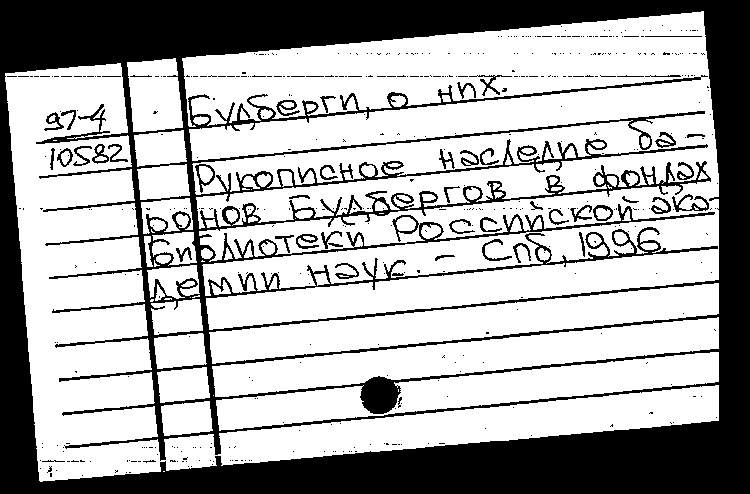 97-4
10582
Будберги, о них.
Рукописное наследие ба-
ронов Будбергов в фондах
библиотеки Российской ака-
демии наук. - Спб, 1996.